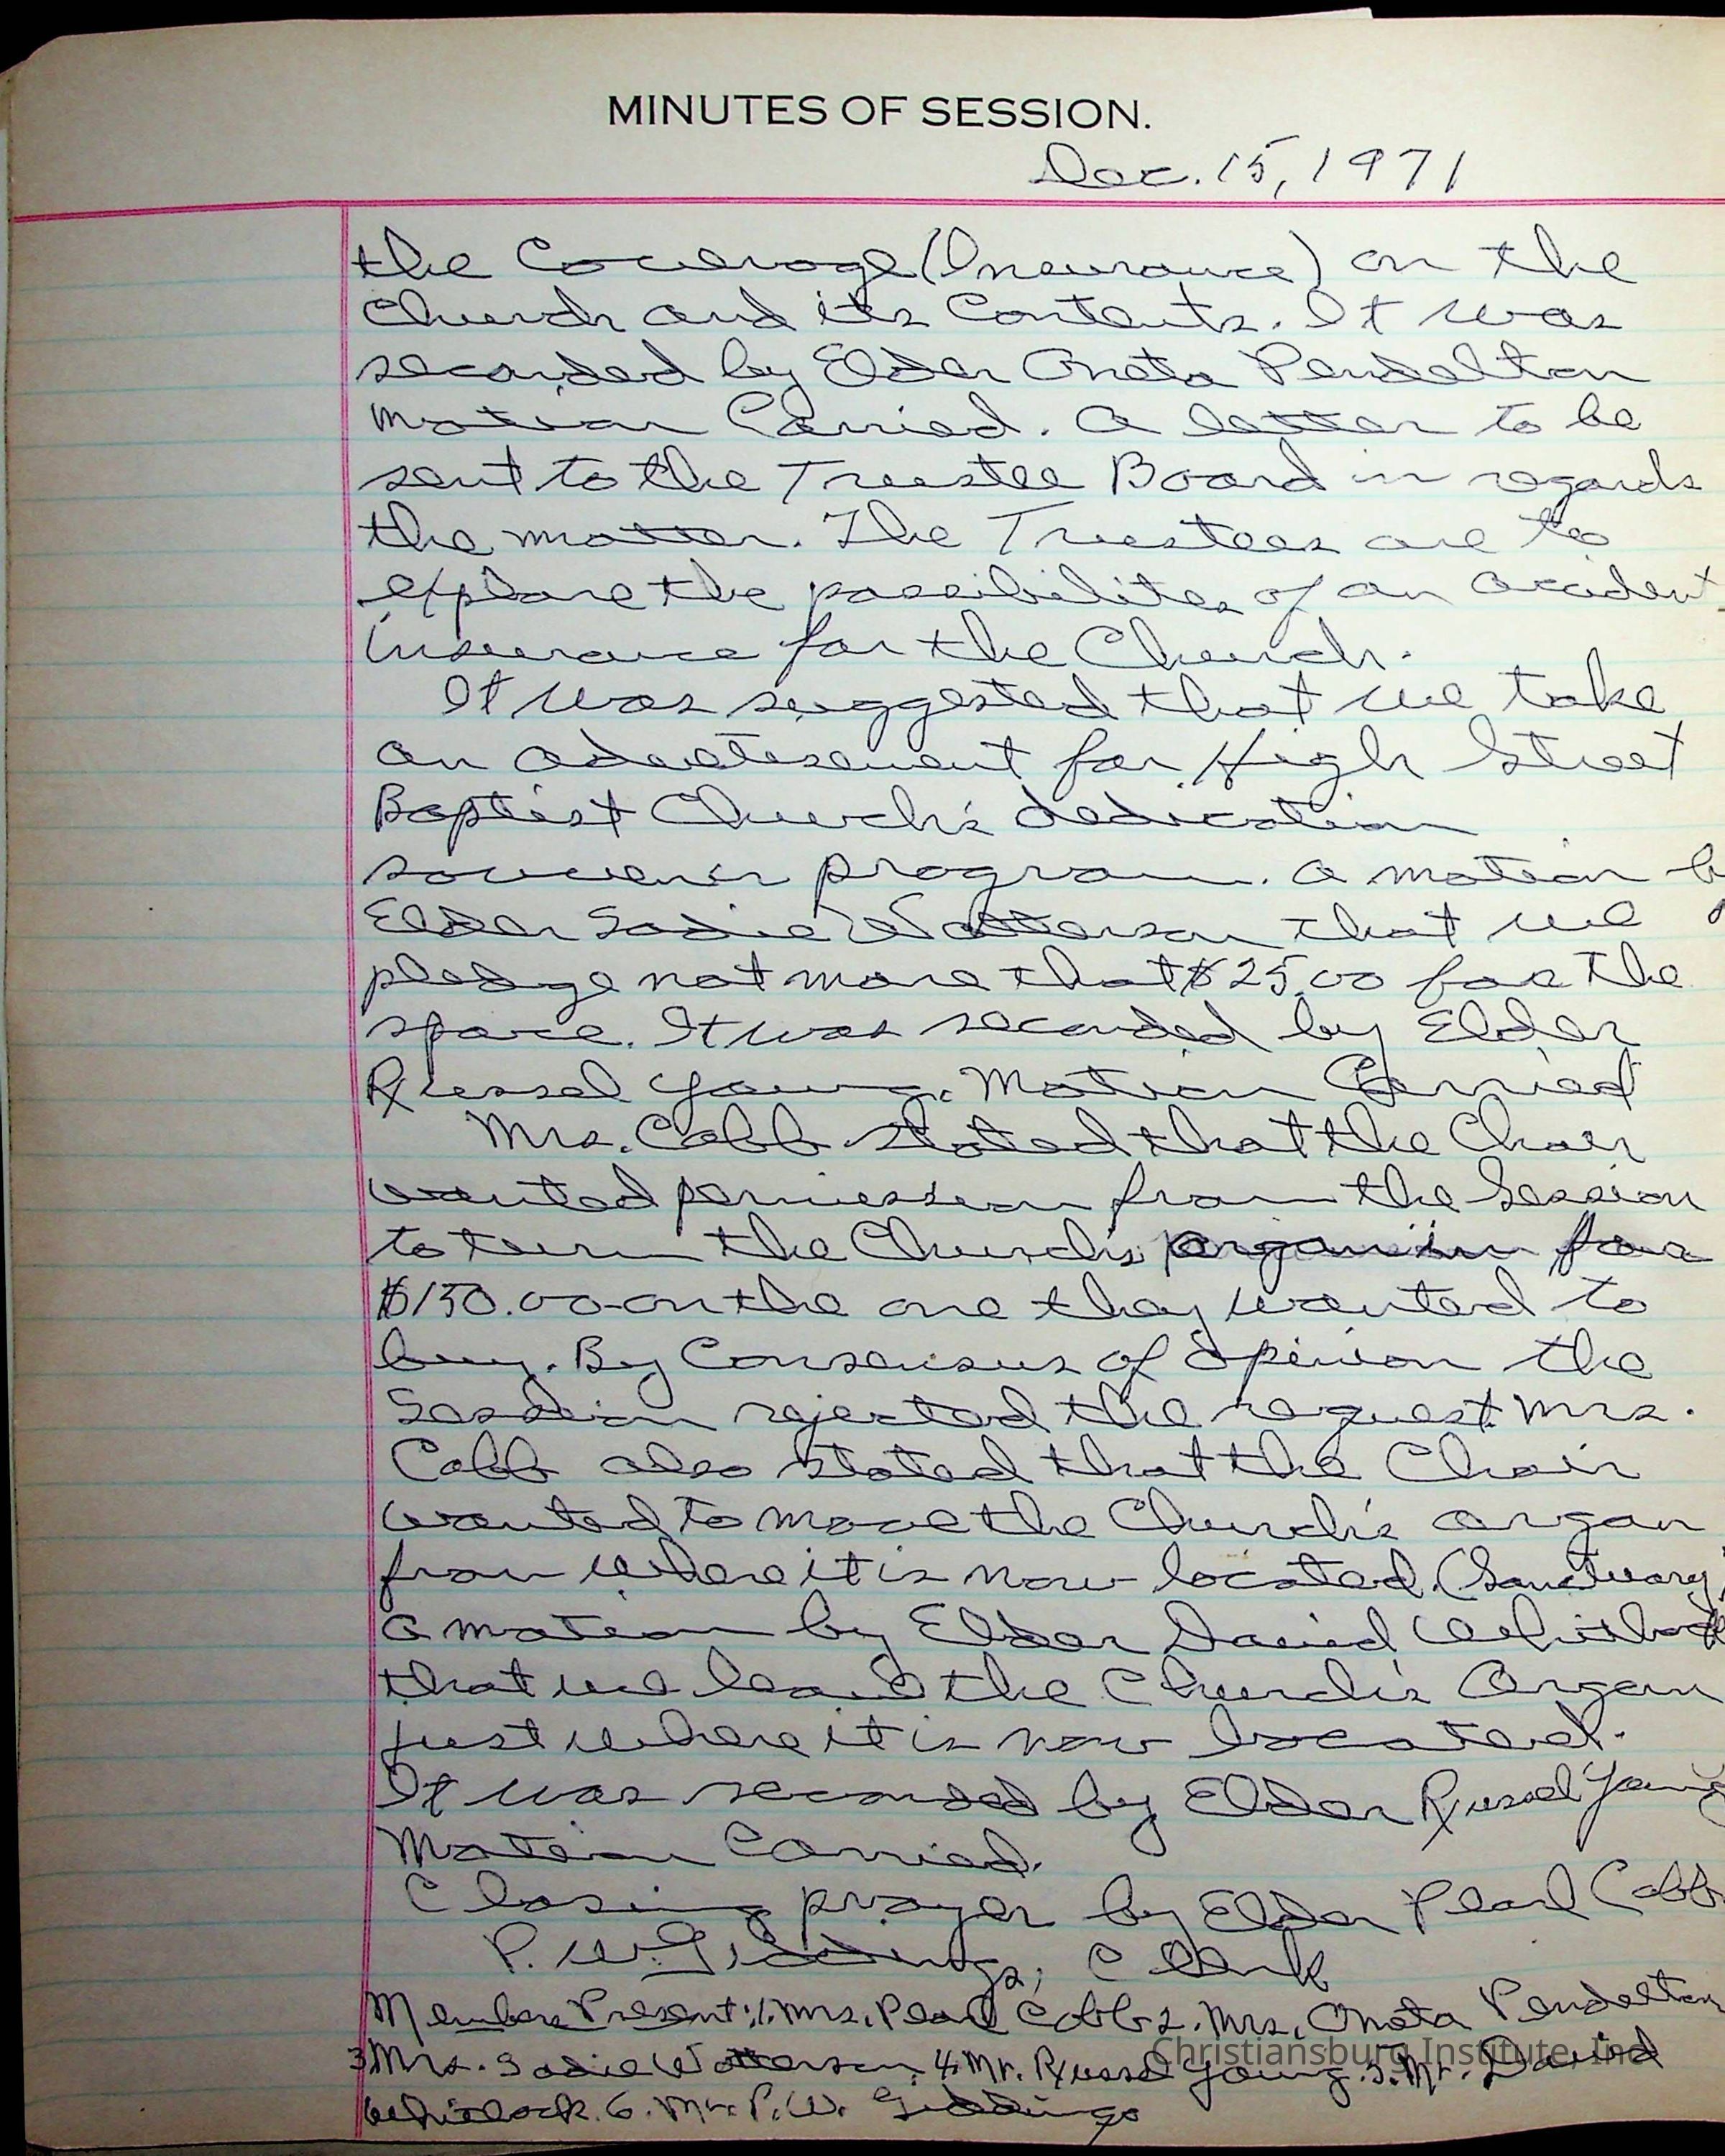 MINUTES OF SESSION.
Dec. 15, 1971
the Coverage (Insurance) on the
Church and its Contents. It was
seconded by Elder Oneta Pendelton
motion Carried. A letter to be
sent to the Trustee Board in regards
the matter. The Trustees are to
explore the possibilites of an accident
insurance for the Church.
It was suggested that we take
an advertisement for High Street
Baptist Church's dedication
souvenir program. A motion by
Elder Sadie Watterson that we
pledge not more that $25.00 for the
space. It was seconded by Elder
Russel Young. Motion Carried
Mrs. Cobb stated that the Choir
wanted permission from the Session
to turn the Church's organ in for
$150.00 on the one they wanted to
buy. By Consensus of opinion the
Session rejected the request. Mrs.
Cobb also stated that the Choir
wanted to move the Church's organ
from where it is now located. (Sanctuary)
A motion by Elder David Whitlock
that we leave the Church's Organ
just where it is now located.
It was seconded by Elder Russel Young
Motion Carried.
Closing prayer by Elder Pearl Cobb
P. W. Giddings, Clerk
Members Present: 1. Mrs. Pearl Cobb 2. Mrs. Oneta Pendelton
3 Mrs. Sadie Watterson. 4. Mr. Russel Young. 5. Mr. David
Whitlock. 6. Mr. P. W. Giddings
Christiansburg Institute, Inc.